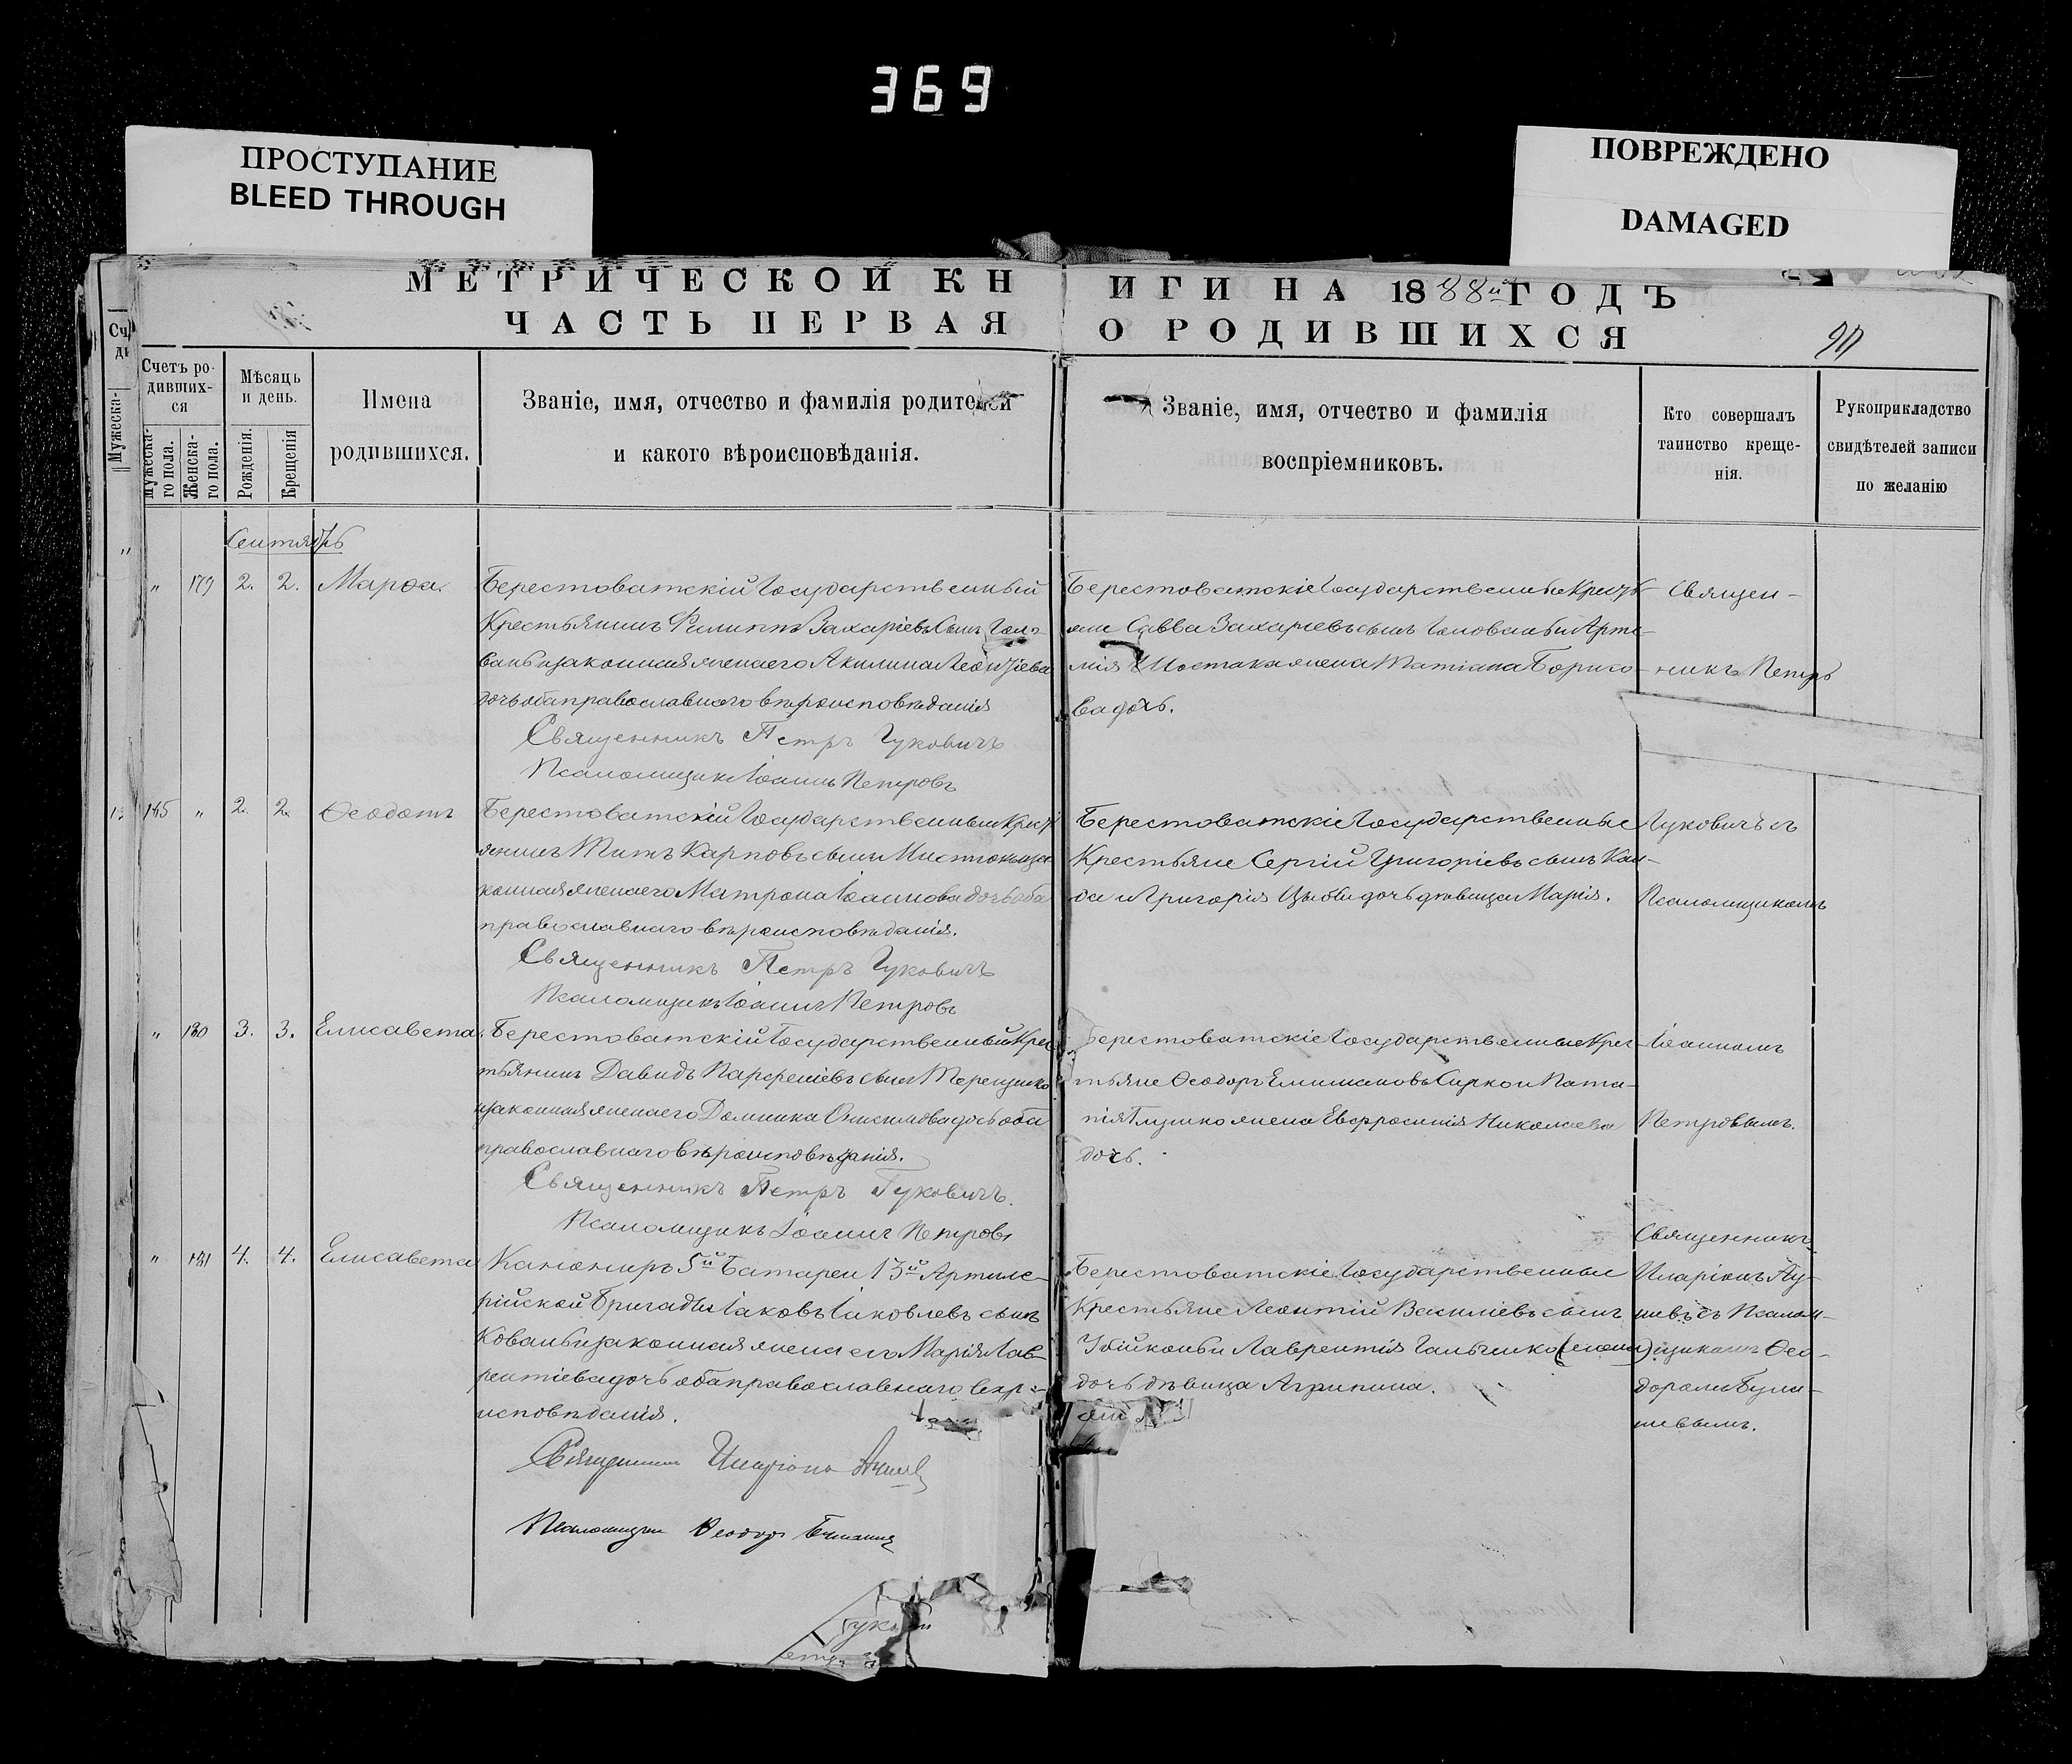 369
ПРОСТУПАНИЕ
BLEED THROUGH
ПОВРЕЖДЕНО
DAMAGED
МЕТРИЧЕСКОЙ КН
ИГИ НА 1888й ГОДЪ
ЧАСТЬ ПЕРВАЯ
О РОДИВШИХСЯ
Счетъ ро-
дивших-
ся
Мужеска-
го пола.
Женска-
го пола.
Мѣсяць
и день.
Рожденія.
Крещенія
Имена
родившихся.
Званіе, имя, отчество и фамилія родителей
и какого вѣроисповѣданія.
Званіе, имя, отчество и фамилія
воспріемниковъ.
Кто совершалъ
таинство креще-
нія.
Рукоприкладство
свидѣтелей записи
по желанію
Мужеска-
Сентябрь
" 179 2. 2. Марѳа.
Берестоватскій Государственный
Крестьянинъ Филиппъ Захаріевъ сынъ Голо-
вань и законная жена его Акилина Леонтіева
дочь оба православнаго вѣроисповѣданія
Священникъ Петръ Гуковичъ
Псаломщикъ Іоаннъ Петровъ
Берестоватскіе Государственные Крестья-
яне Савва Захаріевъ сынъ Головань и Арте-
мія Шостака жена Татіана Борисо-
ва дочь.
Священ-
никъ Петръ
185 " 2. 2. Ѳеодотъ
Берестоватскій Государственный Крест
янинъ Титъ Карповъ сынъ
конная жена его Матрона Іоаннова дочь оба
православнаго вѣроисповѣданія.
Священникъ Петръ Гуковичъ
Псаломщикъ Іоаннъ Петровъ
Берестоватскіе Государственные
Крестьяне Сергій Григоріевъ сынъ Кан-
да и Григорія Цыбы дочь дѣвица Марія.
Гуковичъ съ
Псаломщикомъ
" 180 3. 3. Елисавета.
Берестоватскій Государственный Крес
тьянинъ Давидъ Парфеніевъ сынъ Терещенко
и законная жена его Домника Онисимова дочь оба
православнаго вѣроисповѣданія.
Священникъ Петръ Гуковичъ.
Псаломщикъ Іоаннъ Петровъ
Берестоватскіе Государственные Крес-
тьяне Ѳеодоръ Сирко и Пата-
пія Глушко жена Евфросинія Николаева
дочь.
Іоанномъ
Петровымъ.
" 181 4. 4. Елисавета
Канониръ 5й Батареи 13й Артилле-
рійской бригады Іаковъ Іаковлевъ сынъ
Ковань и законная жена его Марія Лав-
рентіева дочь оба православнаго вѣро-
исповѣданія.
Священникъ Иларіонъ
Псаломщикъ Ѳеодоръ
Берестоватскіе Государственные
Крестьяне Леонтій Василіевъ сынъ
Убійконь и Лаврентія Гальченко
дочь дѣвица Агрипина.
Священникъ
Иларіонъ
съ Псалом-
щикомъ Ѳео-
доромъ